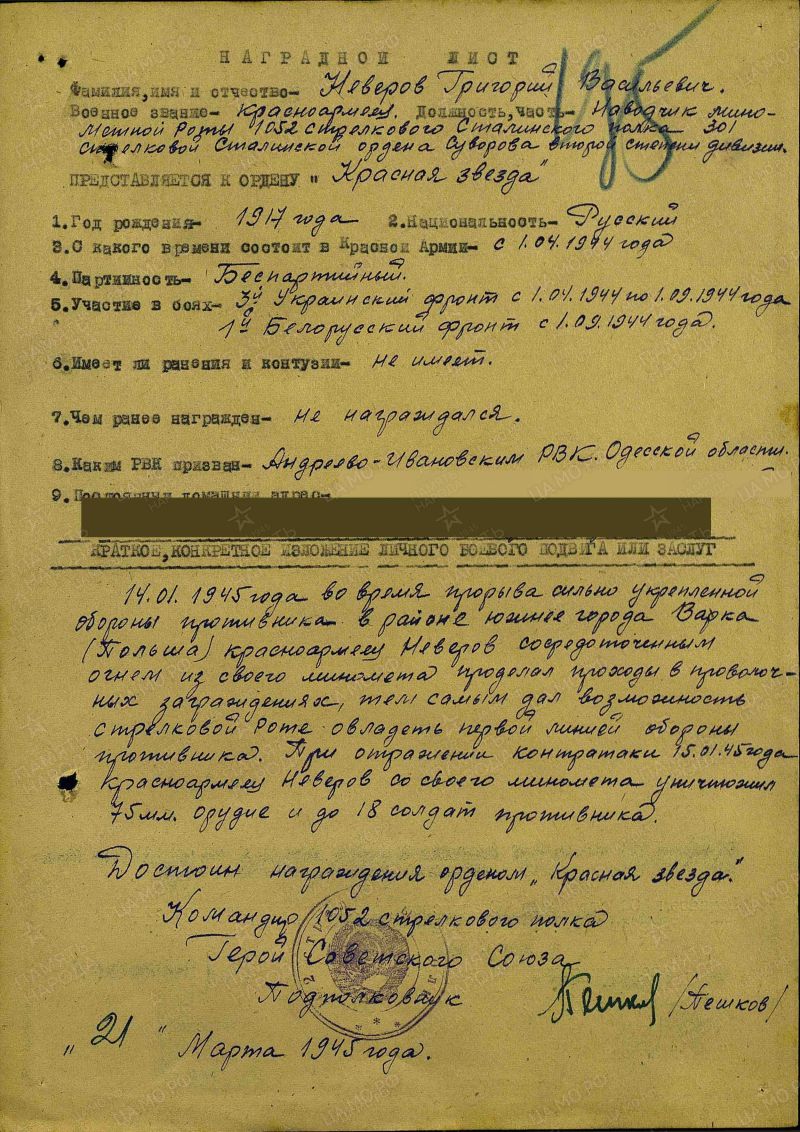 195
НАГРАДНОЙ ЛИСТ
Фамилия,имя и отчество- Неверов Григорий Васильевич.
Военное звание- красноармеец. Должность,часть- Наводчик мино-
метной Роты 1052 стрелкового Сталинского полка 301
стрелковой Сталинской ордена Суворова второй степени дивизии.
ПРЕДСТАВЛЯЕТСЯ К ОРДЕНУ „Красная звезда"
1.Год рождения- 1917 года 2.Национальность- Русский
3.С какого времени состоит в Красной Армии- с 1.04.1944 года
4.Партийность- Беспартийный.
5.Участие в боях- 3й Украинский фронт с 1.04.1944 по 1.09.1944 года
1й Белорусский фронт с 1.09.1944 года.
6.Имеет ли ранения и контузии- не имеет.
7.Чем ранее награжден- не награждался.
8.Каким РВК призван- Андреево-Ивановским РВК. Одесской области.
9.Постоянный домашний адрес-
КРАТКОЕ,КОНКРЕТНОЕ ИЗЛОЖЕНИЕ ЛИЧНОГО БОЕВОГО ПОДВИГА ИЛИ ЗАСЛУГ
14.01.1945 года во время прорыва сильно укрепленной
обороны противника в районе южнее города Варка
(Польша) красноармеец Неверов сосредоточенным
огнем из своего миномета проделал проходы в проволоч-
ных заграждениях, тем самым дал возможность
стрелковой Роте овладеть первой линией обороны
противника. При отражении контратаки 15.01.45 года
красноармеец Неверов со своего миномета уничтожил
75мм. орудие и до 18 солдат противника.
Достоин награждения орденом „Красная звезда."
Командир 1052 стрелкового полка
Герой Советского Союза
Подполковник Пешков /Пешков/
„21" Марта 1945 года.